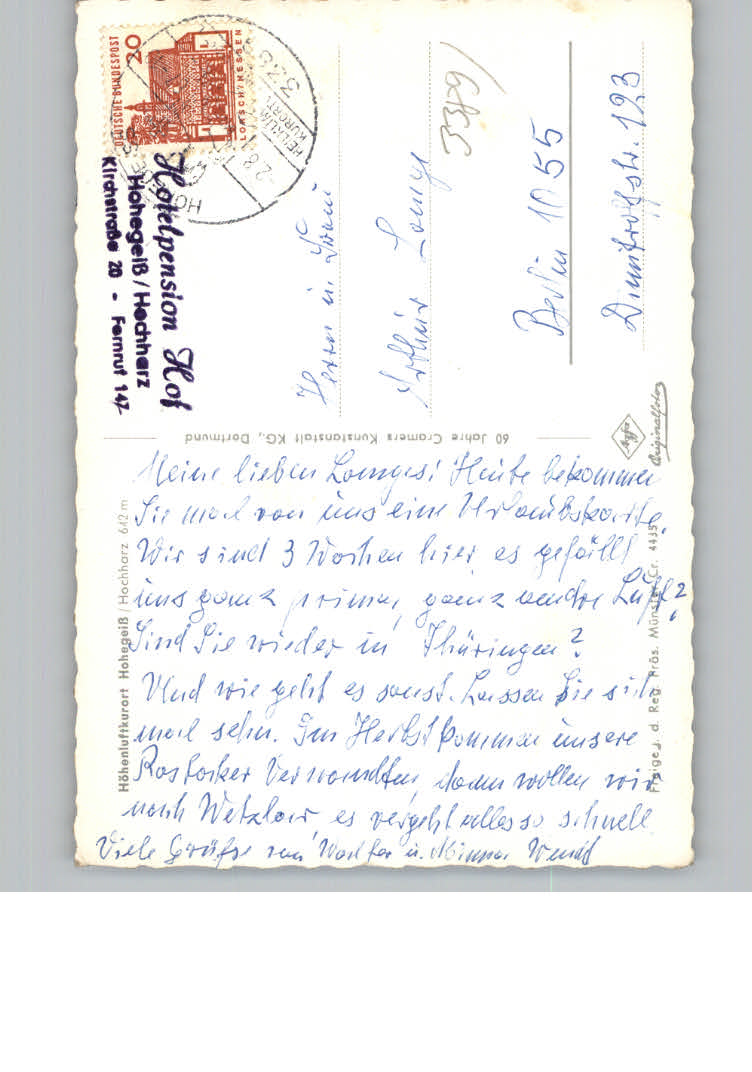 Meine lieben Langes! Heute bekommen
Sie mal von uns eine Urlaubskarte.
Wir sind 3 Wochen hier es gefällt
uns ganz prima, ganz andre Luft.
Sind Sie wieder in Thüringen?
Und wie geht es sonst. Lassen Sie sich
mal sehn. Im Herbst kommen unsere
Rostocker Verwandten, dann wollen wir
nach Wetzlar, es vergeht alles so schnell
Viele Grüße von Walter u. Minna Wendt
Herrn u. Frau
Arthur Lange
Berlin 1055
Dimitroffstr. 123
3389/
DEUTSCHE BUNDESPOST
20
LORSCH/HESSEN
HEILKLIM.
KURORT
Hotelpension Hof
Hohegeiß/Hochharz
Kirchstraße 20 - Fernruf 147
60 Jahre Cramers Kunstanstalt KG., Dortmund
Agfa
Originalfoto
Höhenluftkurort Hohegeiß/Hochharz 642 m
Freigeg. d. Reg. Präs. Münster Cr. 4435